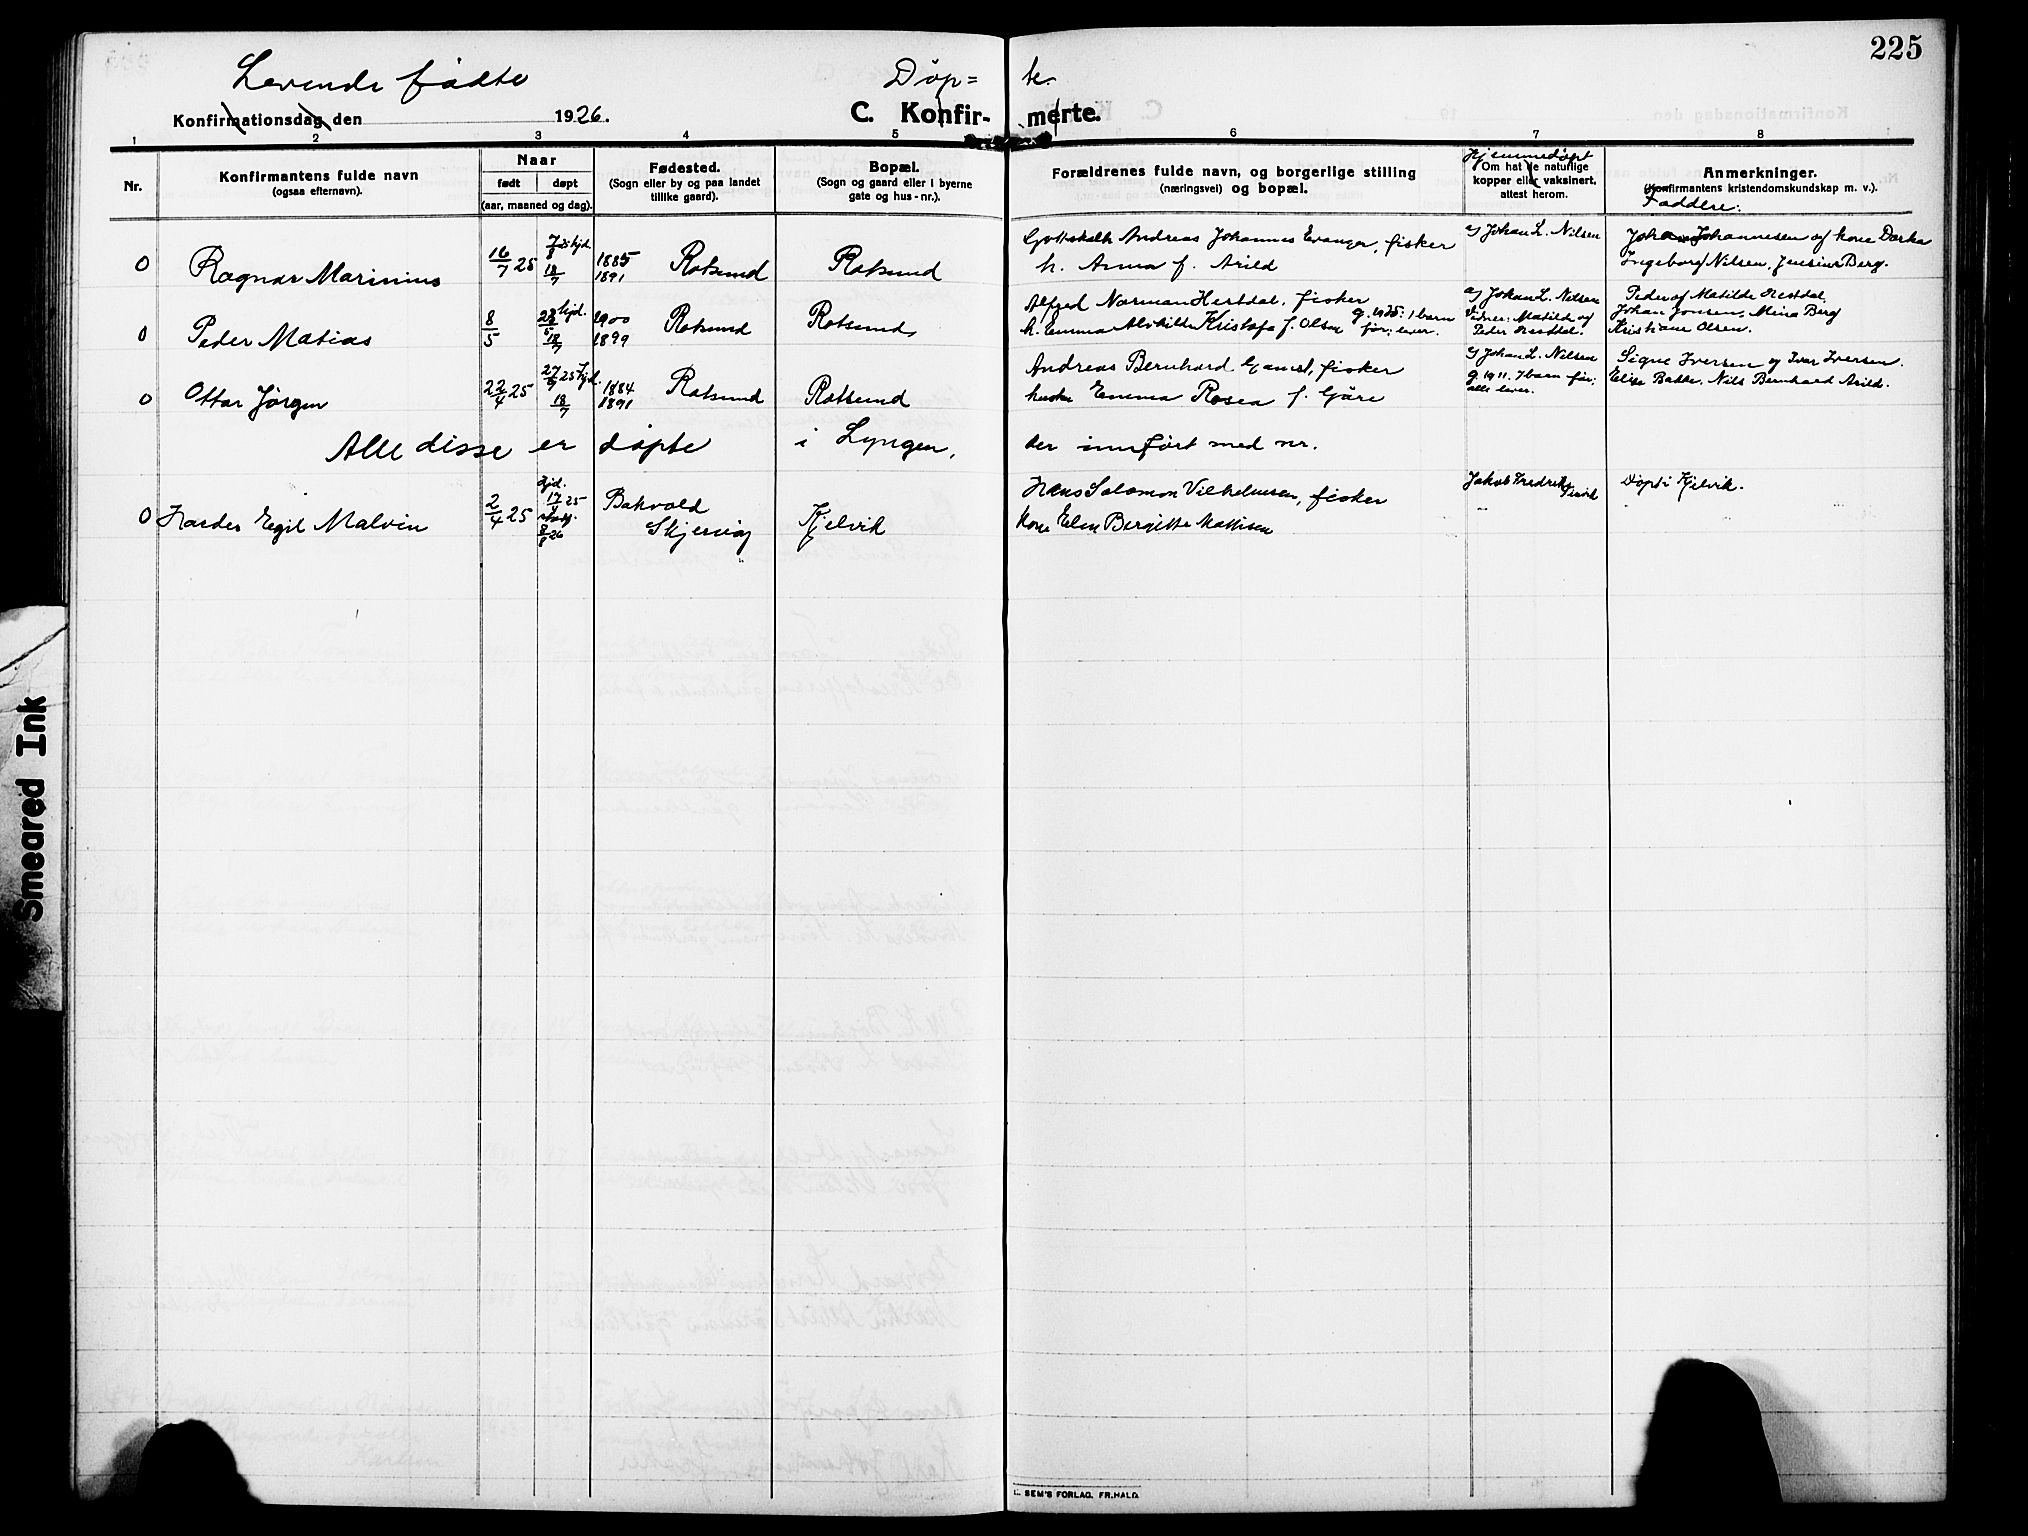 225
Levende fødte
Døp=
te.
Konfirmationsdag den 1926.
C. Konfir-
merte.
1 2 3 4 5 6 7 8
Nr.
Konfirmantens fulde navn
(ogsaa efternavn).
Naar
født døpt
(aar, maaned og dag).
Fødested.
(Sogn eller by og paa landet
tillike gaard).
Bopæl.
(Sogn og gaard eller i byerne
gate og hus-nr.).
Forældrenes fulde navn, og borgerlige stilling
(næringsvei) og bopæl.
Hjemmedøpt
Om hat de naturlige
kopper eller vaksinert,
attest herom.
Anmerkninger.
(Konfirmantens kristendomskundskap m. v.).
Faddere:
0 Ragnar Marinius 16/7 25 18/7 1885 1891 Rotsund Rotsund
Gottskalk Andreas Johannes Evanger, fisker
h. Anna f. Arild
af Johan L. Nilsen
Johan Johannesen og kone Dorka
Ingeborg Nilsen, Jensine Berg.
0 Peder Matias 8/5 18/7 1900 1899 Rotsund Rotsund
Alfred Norman Hestdal, fisker
h. Emma Alvhilde Kristofa f. Olsen g. 1925: 1 barn
før; lever.
af Johan L. Nilsen
Vidner: Matilde og
Peder Hestdal.
Peder og Matilde Hestdal,
Johan Jensen, Mina Berg
Kristiane Olsen.
0 Ottar Jørgen 22/4 25 18/7 1884 1891 Rotsund Rotsund
Andreas Bernhard Gamst, fisker
hustru Emma Rosea f. Gåre
af Johan L. Nilsen
g. 1911. 7 barn før;
alle lever.
Signe Iversen og Ivar Iversen.
Elise Bakke, Nils Bernhard Arild.
Alle disse er døpte i Lyngen,
der innført med nr.
0 Harder Egil Malvin 2/4 25 hjd. 17/4 25 8/8 26
Bakvold
Skjervøy
Kjelvik
Hans Salomon Vilhelmsen, fisker
kone Elen Bergitte Mattisen
Jakob Fredrik
Døpt i Kjelvik.
SEM'S FORLAG. FR.HALD.
Smeared Ink